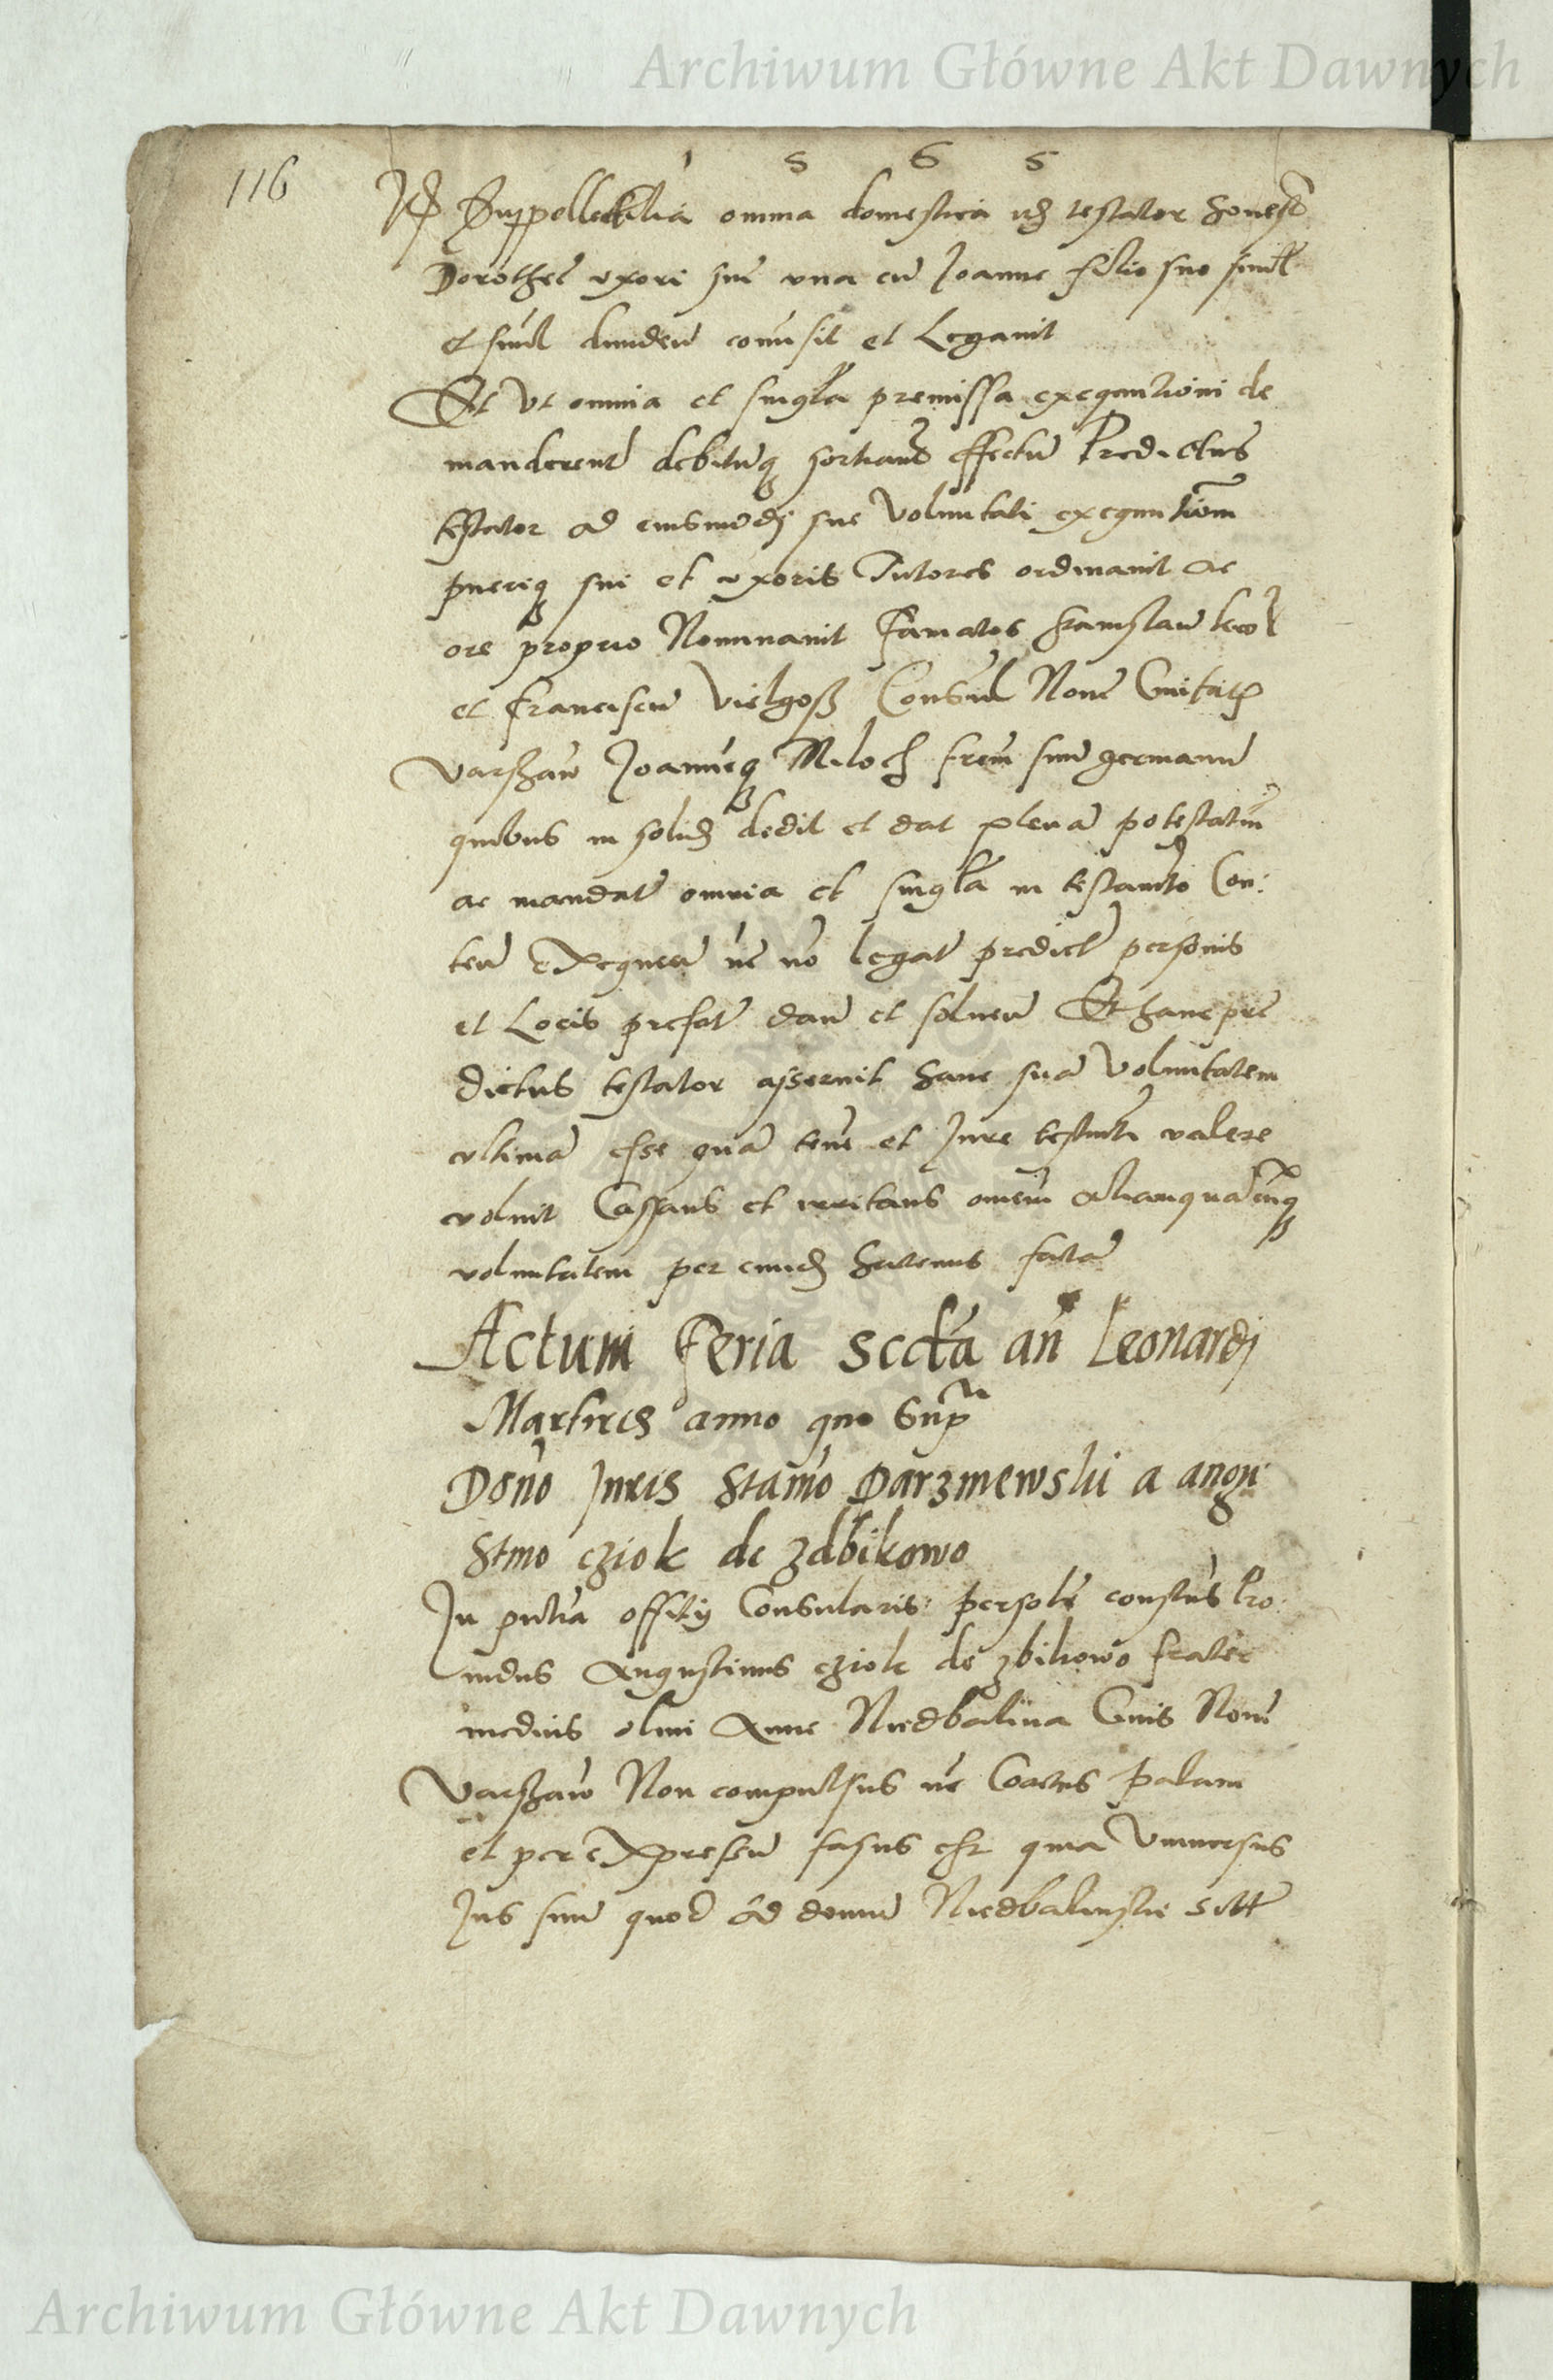 Archiwum Główne Akt Dawnych
116
1 5 6 5
Suppellectilia omnia domestica testator
Dorothee uxori sue una cu Joanne filio suo simul
et simul et Legavit
Et Ut omnia et singla premissa exequutioni de
manderent debitumq sortiant effectu Predictus
testator ad eiusmodi sue Voluntati exequutiom
pueriq sui et uxoris Tutores ordinavit ac
ore proprio Nominavit Famatos Stanislau
et Franciscu Vielgosz Consul Nove Civitatis
Varshaw Joanneq Miloch frem suu germanu
quibus in solid dedit et dat plena potestatem
ac mandat omnia et singla in testamto Con:
legat predict personis
et Locis prefat dare et solvere Et hanc pre
dictus testator asseruit hanc sua Voluntatem
ultima esse qua et Jure testmti valere
voluit Cassans et irritans omem
voluntatem per eund hactenus facta
Actum Feria sccda an Leonardi
Martires anno quo Sup
Dono Juris Stanio Parzniewski a augu
Stino cziok de zdbikowo
In pntia offitij Consularis persolr constus Pro
vidus Augustinus cziok de zbikowo frater
olim Anne Niedbalina Civis Nove
Varshaw Non compulsus nec Coactus palam
et per Expresseu fasus est quia Universus
Jus suu quod ad domu
Archiwum Główne Akt Dawnych